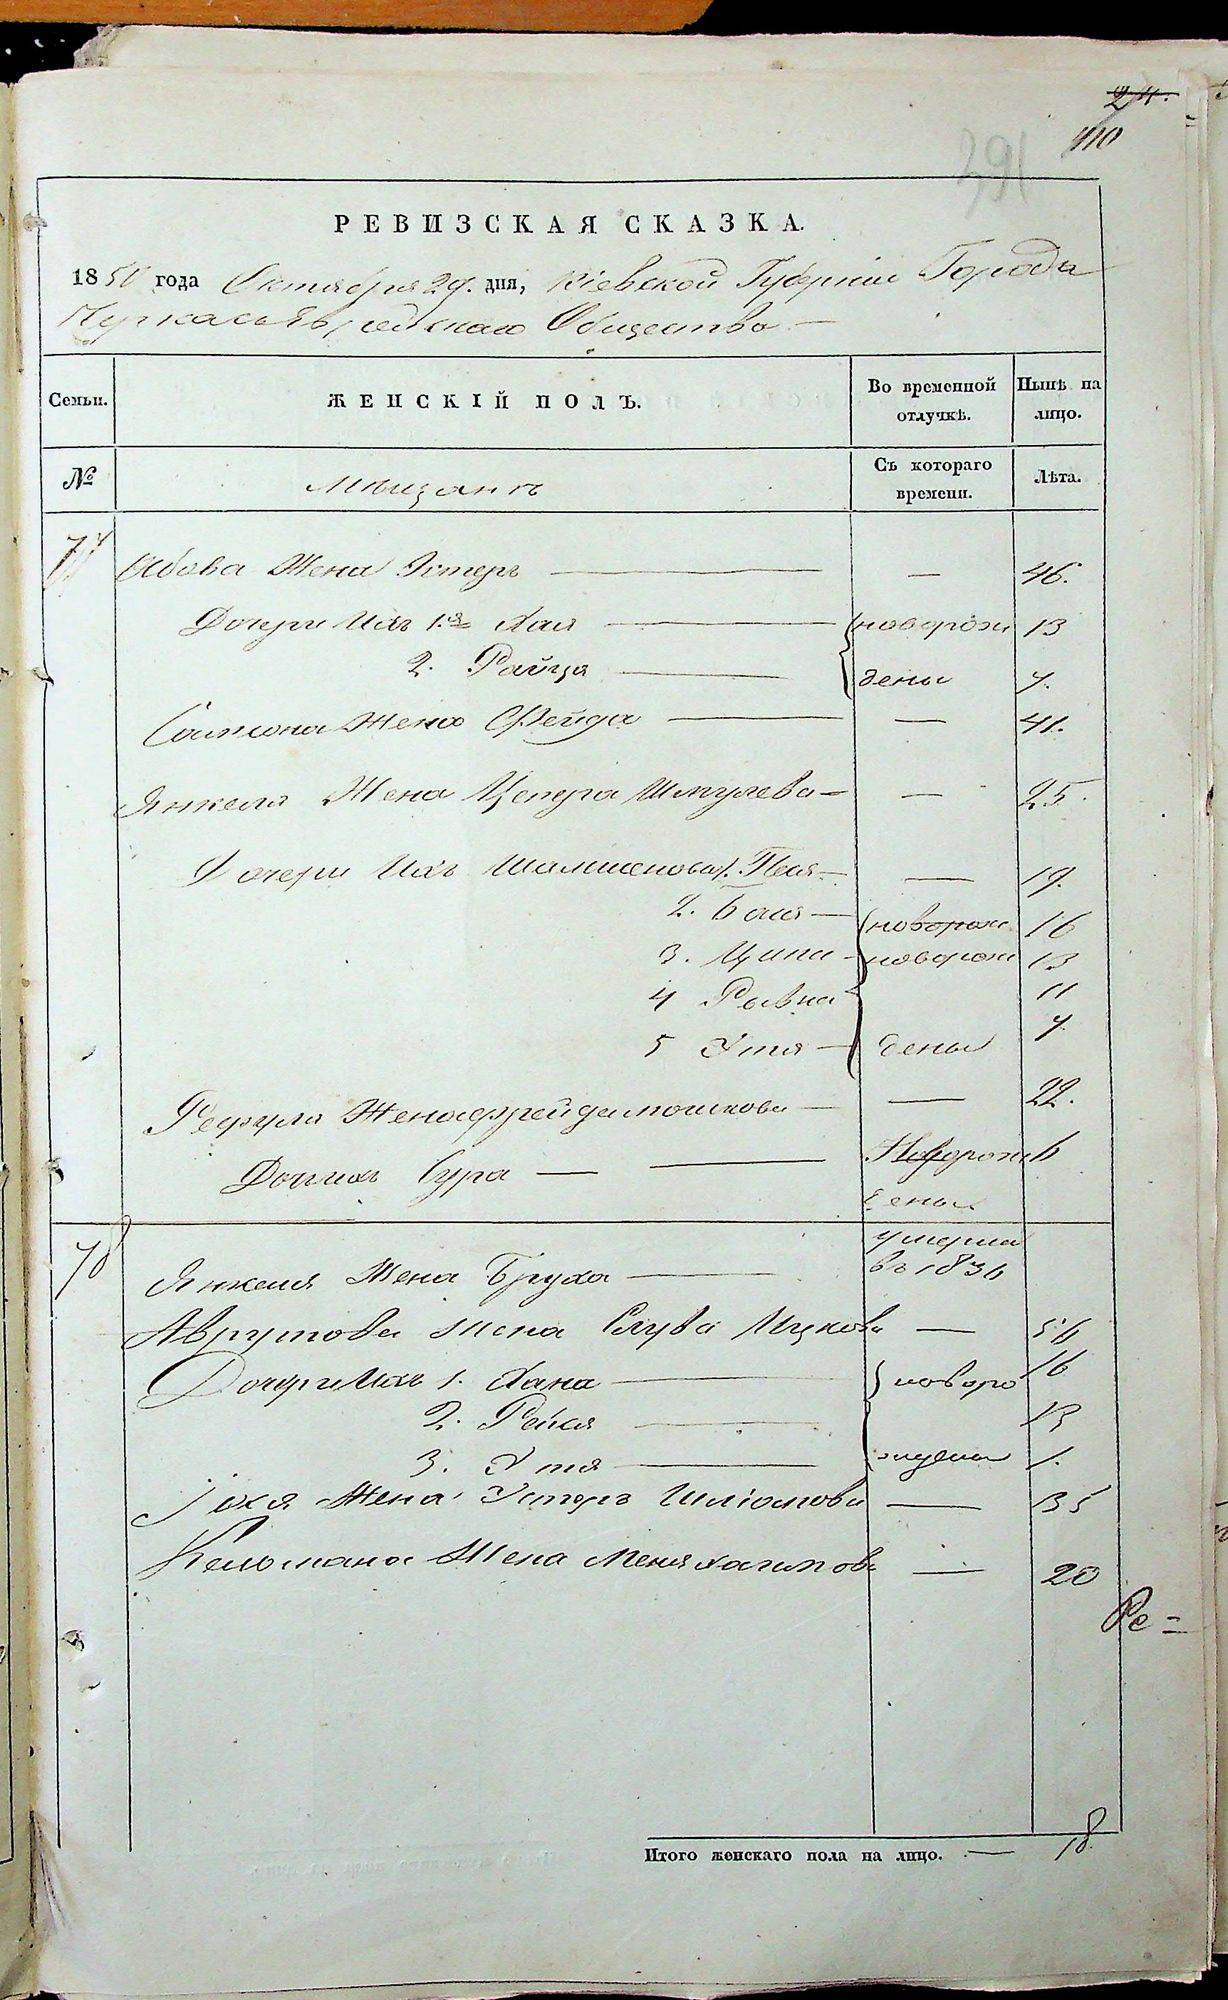 24.
410
391
РЕВИЗСКАЯ СКАЗКА.
1850 года Октября 29. дня, Кіевской Губерніи Города
Черкасъ Еврейскаго Общества
Семьи. ЖЕНСКІЙ ПОЛЪ. Во временной отлучкѣ. Нынѣ на лицо.
№ Мѣщанъ Съ котораго времени. Лѣта.
77 Жена Эстеръ — 46.
Дочери Ихъ 1.я Хая новорож 13
2. Райца дены 7.
Самсона Жена Фейда — 41.
Янкеля Жена Шмулева — 25.
Дочери Ихъ 1. Песя — 19.
2. Бася новорож 16
3. Ципа новорож 13
4 Рывка 11
5 Этя дены 7.
Рефула Жена Фрейда Мошкова — 22.
Дочь ихъ Сура Новорож 6
дены
78 Янкеля Жена Бруха умерла
въ 1836
Аврумова жена Слува Ицкова — 56
Дочери Ихъ 1. Хана новоро 16
2. Рейзя 13
3. Этя ждены 1.
Жена Эстеръ Шліомова — 35
Кельмана Жена Меня Хаимова — 20
Ре=
Итого женскаго пола на лицо. — 18.